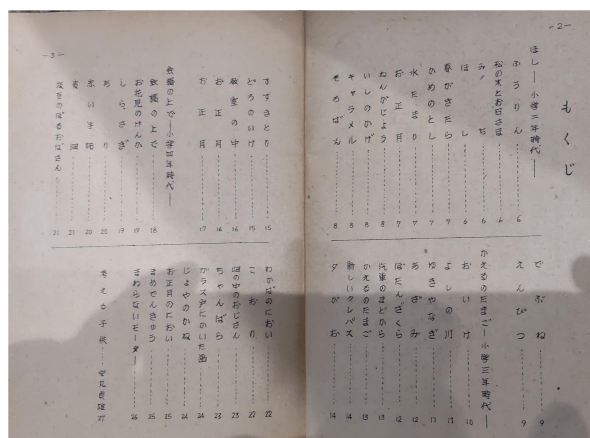 —2—
もくじ
ほし——小学二年時代——
ふうりん 6
松の木とお日さま 6
みち 6
ほし 7
春がきたら 7
ひめのとし 7
水たまり 7
お正月 7
ねんがじょう 8
いしのかげ 8
キャラメル 8
そろばん 8
でぶね 9
えんぴつ 9
かえるのたまご——小学三年時代——
おいけ 10
よしの川 11
ゆきやなぎ 11
あざみ 12
ぼたんざくら 12
汽車のまどから 13
かえるのたまご 13
新しいクレパス 14
夕がお 14
—3—
すずきとり 15
どろのいけ 15
教室の中 16
お正月 16
お正月 17
鉄橋の上で——小学四年時代——
鉄橋の上で 18
お花見のけんか 19
しらさぎ 19
あり 20
赤い手袋 20
麦畑 21
21
わかばのにおい 22
こおり 22
田の中のおじさん 23
ちゃんばら 23
ガラス戸にかいた画 24
じょやのかね 24
お正月のにおい 25
まめでんきゅう 25
まわらないモーター 26
考える子供 27